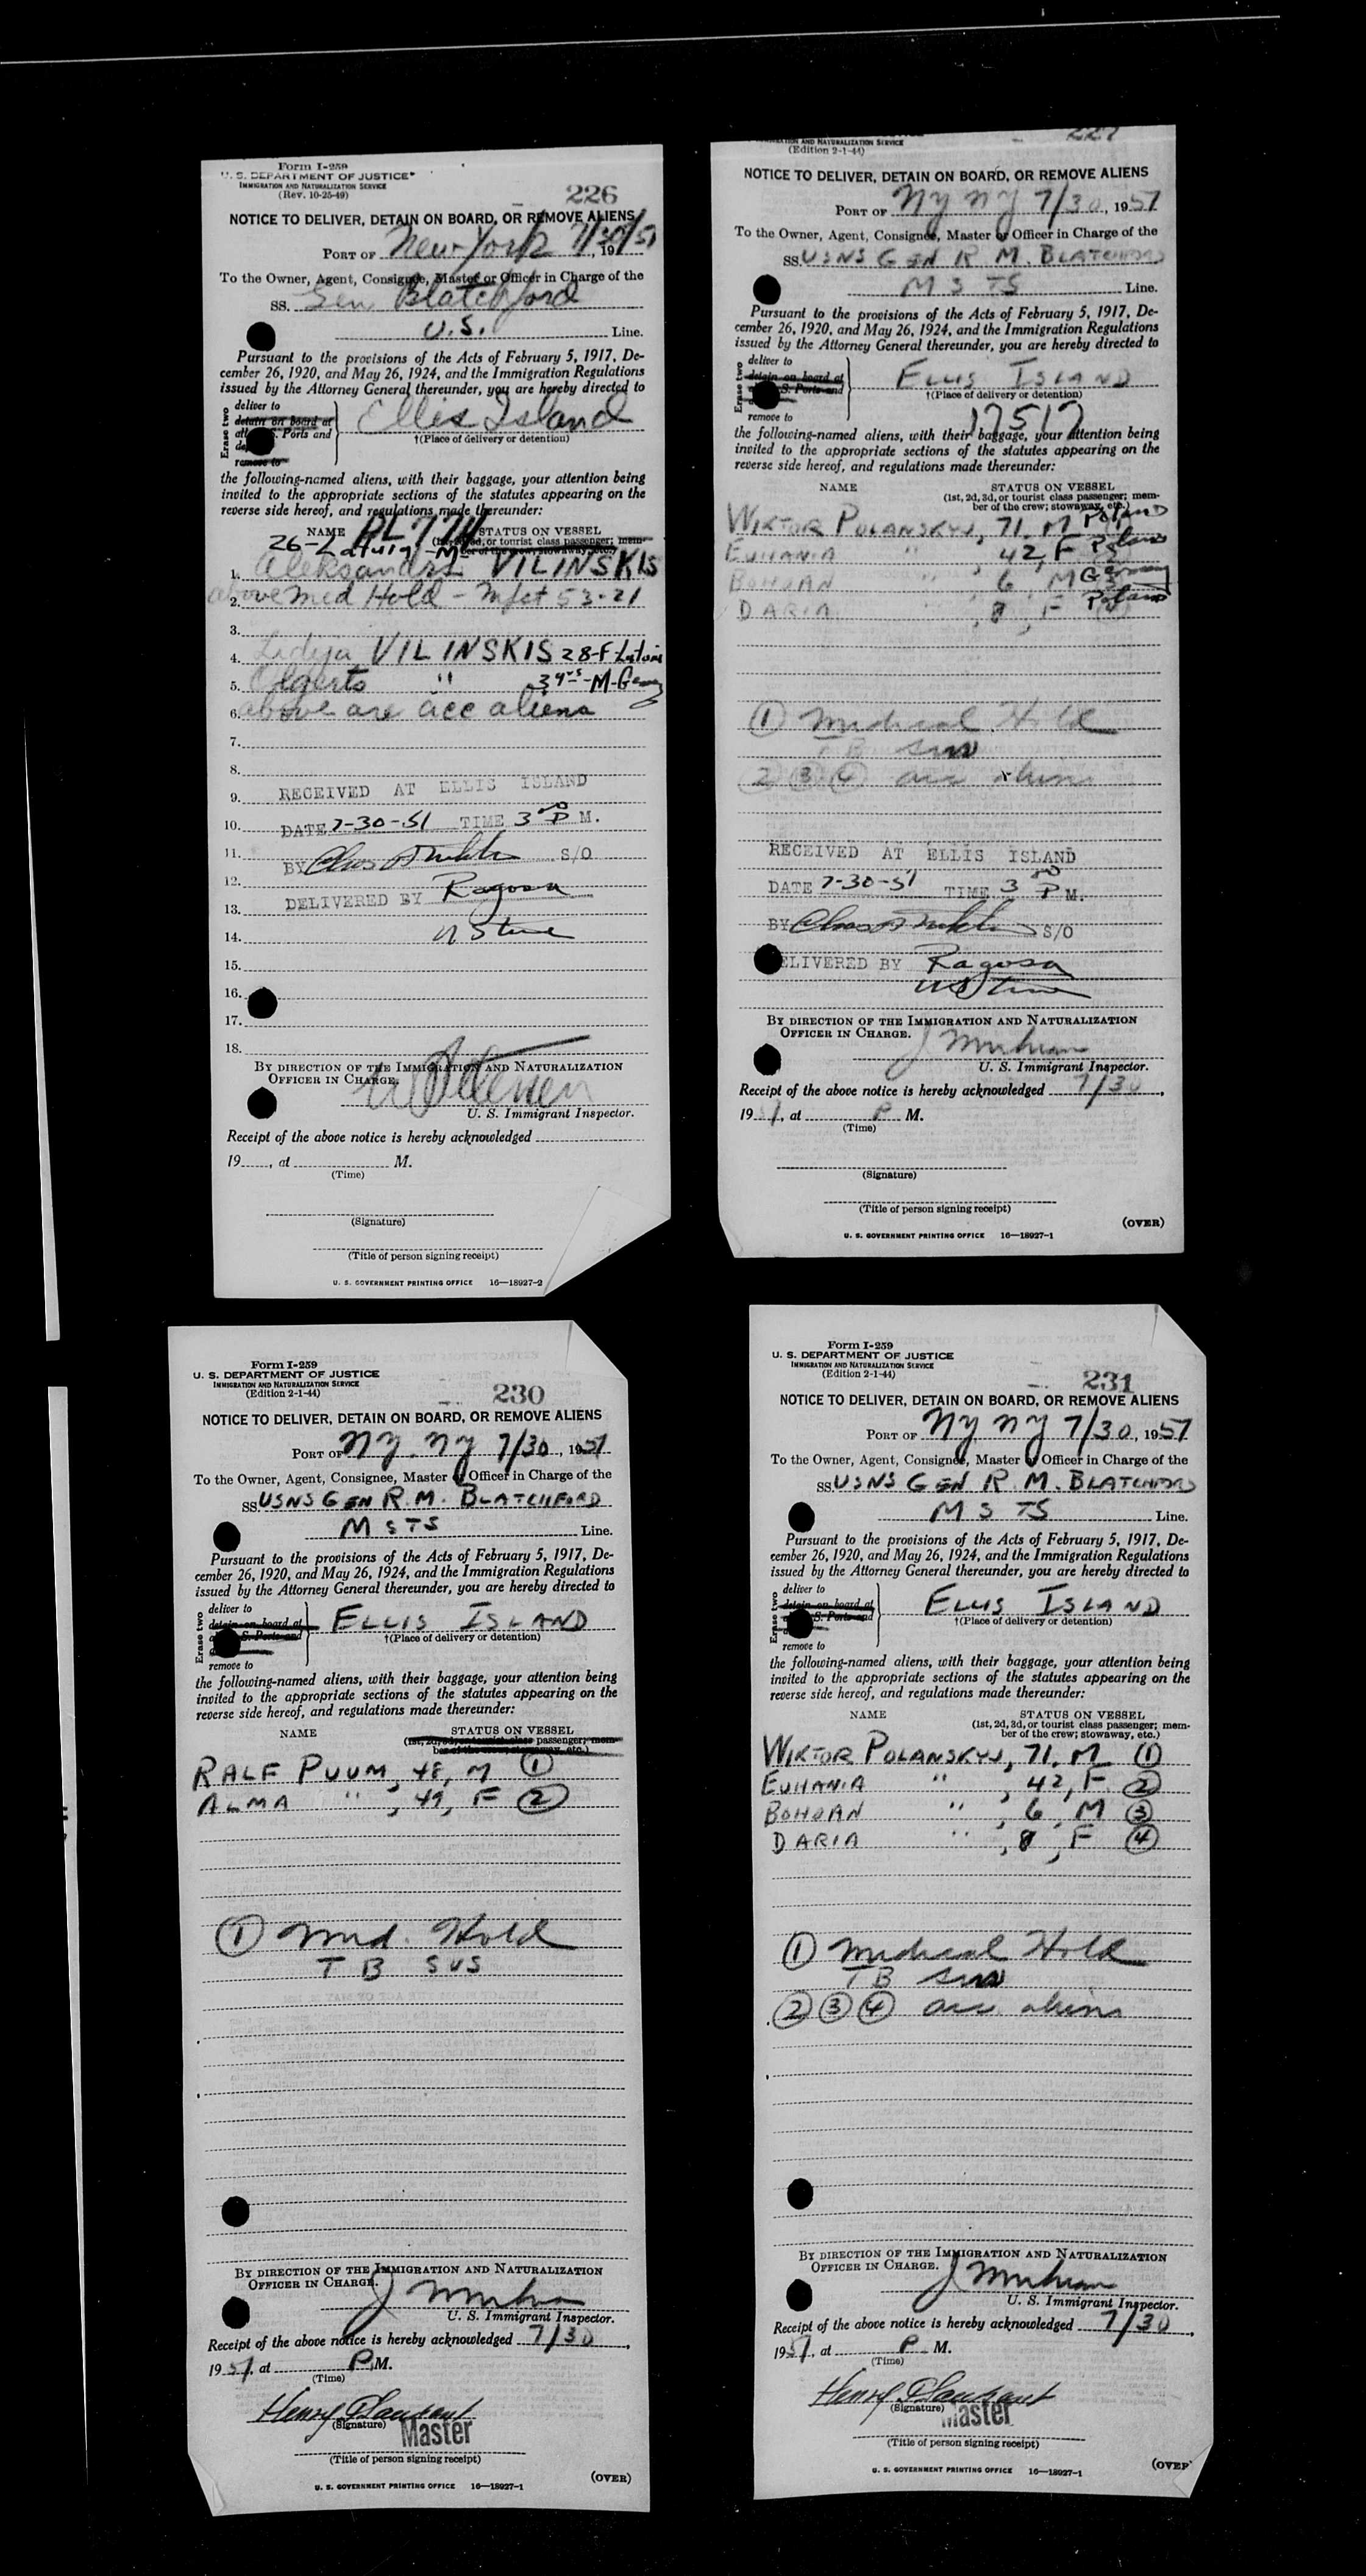 Form I-259
U. S. DEPARTMENT OF JUSTICE
IMMIGRATION AND NATURALIZATION SERVICE
(Rev. 10-25-49)
226
NOTICE TO DELIVER, DETAIN ON BOARD, OR REMOVE ALIENS
PORT OF New York 7/30/51, 19
To the Owner, Agent, Consignee, Master or Officer in Charge of the
SS. Gen Blatchford
U.S. Line.
Pursuant to the provisions of the Acts of February 5, 1917, De-
cember 26, 1920, and May 26, 1924, and the Immigration Regulations
issued by the Attorney General thereunder, you are hereby directed to
Erase two
deliver to
detain on board at
Ports and
remove to
Ellis Island
†(Place of delivery or detention)
the following-named aliens, with their baggage, your attention being
invited to the appropriate sections of the statutes appearing on the
reverse side hereof, and regulations made thereunder:
NAME STATUS ON VESSEL
26-Latvia-M
1. Aleksandrs VILINSKIS
2. above Med Hold - Mfst 53-21
3.
4. Lidija VILINSKIS 28-F Latvia
5. Olgerts " 3 yrs-M-Germany
6. above are acc aliens
7.
8.
9. RECEIVED AT ELLIS ISLAND
10. DATE 7-30-51 TIME 3 00 P M.
11. BY S/O
12.
DELIVERED BY Ragosa
13.
14.
15.
16.
17.
18.
BY DIRECTION OF THE IMMIGRATION AND NATURALIZATION
OFFICER IN CHARGE.
U. S. Immigrant Inspector.
Receipt of the above notice is hereby acknowledged
19, at M.
(Time)
(Signature)
(Title of person signing receipt)
U. S. GOVERNMENT PRINTING OFFICE 16—18927-2
227
IMMIGRATION AND NATURALIZATION SERVICE
(Edition 2-1-44)
NOTICE TO DELIVER, DETAIN ON BOARD, OR REMOVE ALIENS
PORT OF NY NY 7/30, 1951
To the Owner, Agent, Consignee, Master or Officer in Charge of the
SS USNS GEN R M. BLATCHFORD
MSTS Line.
Pursuant to the provisions of the Acts of February 5, 1917, De-
cember 26, 1920, and May 26, 1924, and the Immigration Regulations
issued by the Attorney General thereunder, you are hereby directed to
Erase two
deliver to
detain on board at
S. Ports and
remove to
ELLIS ISLAND
†(Place of delivery or detention)
17517
the following-named aliens, with their baggage, your attention being
invited to the appropriate sections of the statutes appearing on the
reverse side hereof, and regulations made thereunder:
NAME STATUS ON VESSEL
(1st, 2d, 3d, or tourist class passenger; mem-
ber of the crew; stowaway, etc.)
WIKTOR POLANSKYJ, 71, M Poland
EUHANIA " , 42, F Poland
BOHDAN , 6, M Germany
DARIA , 8, F Poland
① Medical Hold
TB sus
② ③ ④ acc aliens
RECEIVED AT ELLIS ISLAND
DATE 7-30-51 TIME 3 00 P M.
BY S/O
DELIVERED BY Ragosa
BY DIRECTION OF THE IMMIGRATION AND NATURALIZATION
OFFICER IN CHARGE.
U. S. Immigrant Inspector.
Receipt of the above notice is hereby acknowledged 7/30,
1951, at P M.
(Time)
(Signature)
(Title of person signing receipt)
(OVER)
U. S. GOVERNMENT PRINTING OFFICE 16—18927-1
Form I-259
U. S. DEPARTMENT OF JUSTICE
IMMIGRATION AND NATURALIZATION SERVICE
(Edition 2-1-44)
230
NOTICE TO DELIVER, DETAIN ON BOARD, OR REMOVE ALIENS
PORT OF NY. NY 7/30, 1951
To the Owner, Agent, Consignee, Master or Officer in Charge of the
SS USNS GEN R. M. BLATCHFORD
MSTS Line.
Pursuant to the provisions of the Acts of February 5, 1917, De-
cember 26, 1920, and May 26, 1924, and the Immigration Regulations
issued by the Attorney General thereunder, you are hereby directed to
Erase two
deliver to
detain on board at
S. Ports and
remove to
ELLIS ISLAND
†(Place of delivery or detention)
the following-named aliens, with their baggage, your attention being
invited to the appropriate sections of the statutes appearing on the
reverse side hereof, and regulations made thereunder:
NAME STATUS ON VESSEL
(1st, 2d, 3d, or tourist class passenger; mem-
ber of the crew; stowaway, etc.)
RALF PUUM, 48, M ①
ALMA " , 49, F ②
① Med. Hold
TB SUS
BY DIRECTION OF THE IMMIGRATION AND NATURALIZATION
OFFICER IN CHARGE.
U. S. Immigrant Inspector.
Receipt of the above notice is hereby acknowledged 7/30,
1951, at P M.
(Time)
Henry
(Signature)
Master
(Title of person signing receipt)
(OVER)
U. S. GOVERNMENT PRINTING OFFICE 16—18927-1
Form I-259
U. S. DEPARTMENT OF JUSTICE
IMMIGRATION AND NATURALIZATION SERVICE
(Edition 2-1-44)
231
NOTICE TO DELIVER, DETAIN ON BOARD, OR REMOVE ALIENS
PORT OF NY NY 7/30, 1951
To the Owner, Agent, Consignee, Master or Officer in Charge of the
SS USNS GEN R. M. BLATCHFORD
MSTS Line.
Pursuant to the provisions of the Acts of February 5, 1917, De-
cember 26, 1920, and May 26, 1924, and the Immigration Regulations
issued by the Attorney General thereunder, you are hereby directed to
Erase two
deliver to
detain on board at
S. Ports and
remove to
ELLIS ISLAND
†(Place of delivery or detention)
the following-named aliens, with their baggage, your attention being
invited to the appropriate sections of the statutes appearing on the
reverse side hereof, and regulations made thereunder:
NAME STATUS ON VESSEL
(1st, 2d, 3d, or tourist class passenger; mem-
ber of the crew; stowaway, etc.)
WIKTOR POLANSKYJ, 71, M ①
EUHANIA " , 42, F ②
BOHDAN " , 6, M ③
DARIA " , 8, F ④
① Medical Hold
TB sus
② ③ ④ acc aliens
BY DIRECTION OF THE IMMIGRATION AND NATURALIZATION
OFFICER IN CHARGE.
U. S. Immigrant Inspector.
Receipt of the above notice is hereby acknowledged 7/30,
1951, at P. M.
(Time)
Henry
(Signature)
Master
(Title of person signing receipt)
(OVER
U. S. GOVERNMENT PRINTING OFFICE 16—18927-1